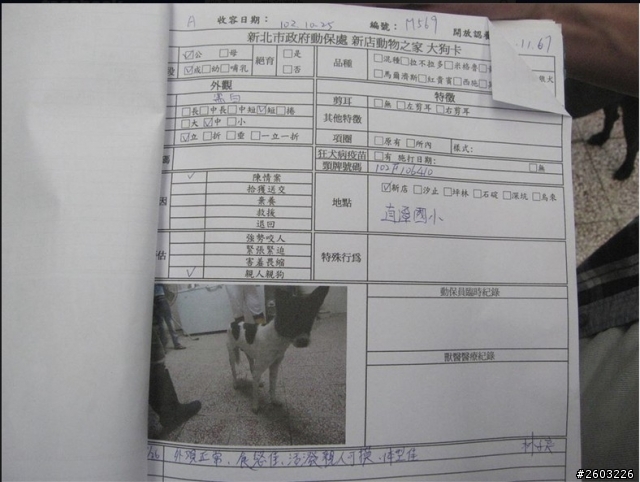 A 收容日期： 102.10.25 編號： M569 開放認養
11.67
新北市政府動保處 新店動物之家 大狗卡
☑公 □母 絕育 □是 品種 □混種□拉不拉多□米格魯
☑成□幼□哺乳 □否 □馬爾濟斯□紅貴賓□西施 狼犬
外觀 特徵
黑白 剪耳 □無 □左剪耳 □右剪耳
□長□中長□中短☑短□捲
□大 ☑中 □小 其他特徵
☑立 □折 □垂 □一立一折 項圈 □原有 □所內 樣式：
狂犬病疫苗 □有 施打日期： □無
頸牌號碼 102F106410
✓ 陳情案 地點 ☑新店 □汐止 □坪林 □石碇 □深坑 □烏來
拾獲送交 直潭國小
棄養
救援
退回
強勢咬人 特殊行為
緊張緊迫
害羞畏縮
✓ 親人親狗
動保員臨時紀錄
獸醫醫療紀錄
外觀正常、活潑親人可摸、体型佳
#2603226